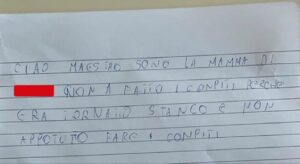 CIAO MAESTRO SONO LA MAMMA DI
NON A FATTO I COMPITI PERCHE
ERA TORNATO STANCO E NON
APPOTUTO FARE I COMPITI